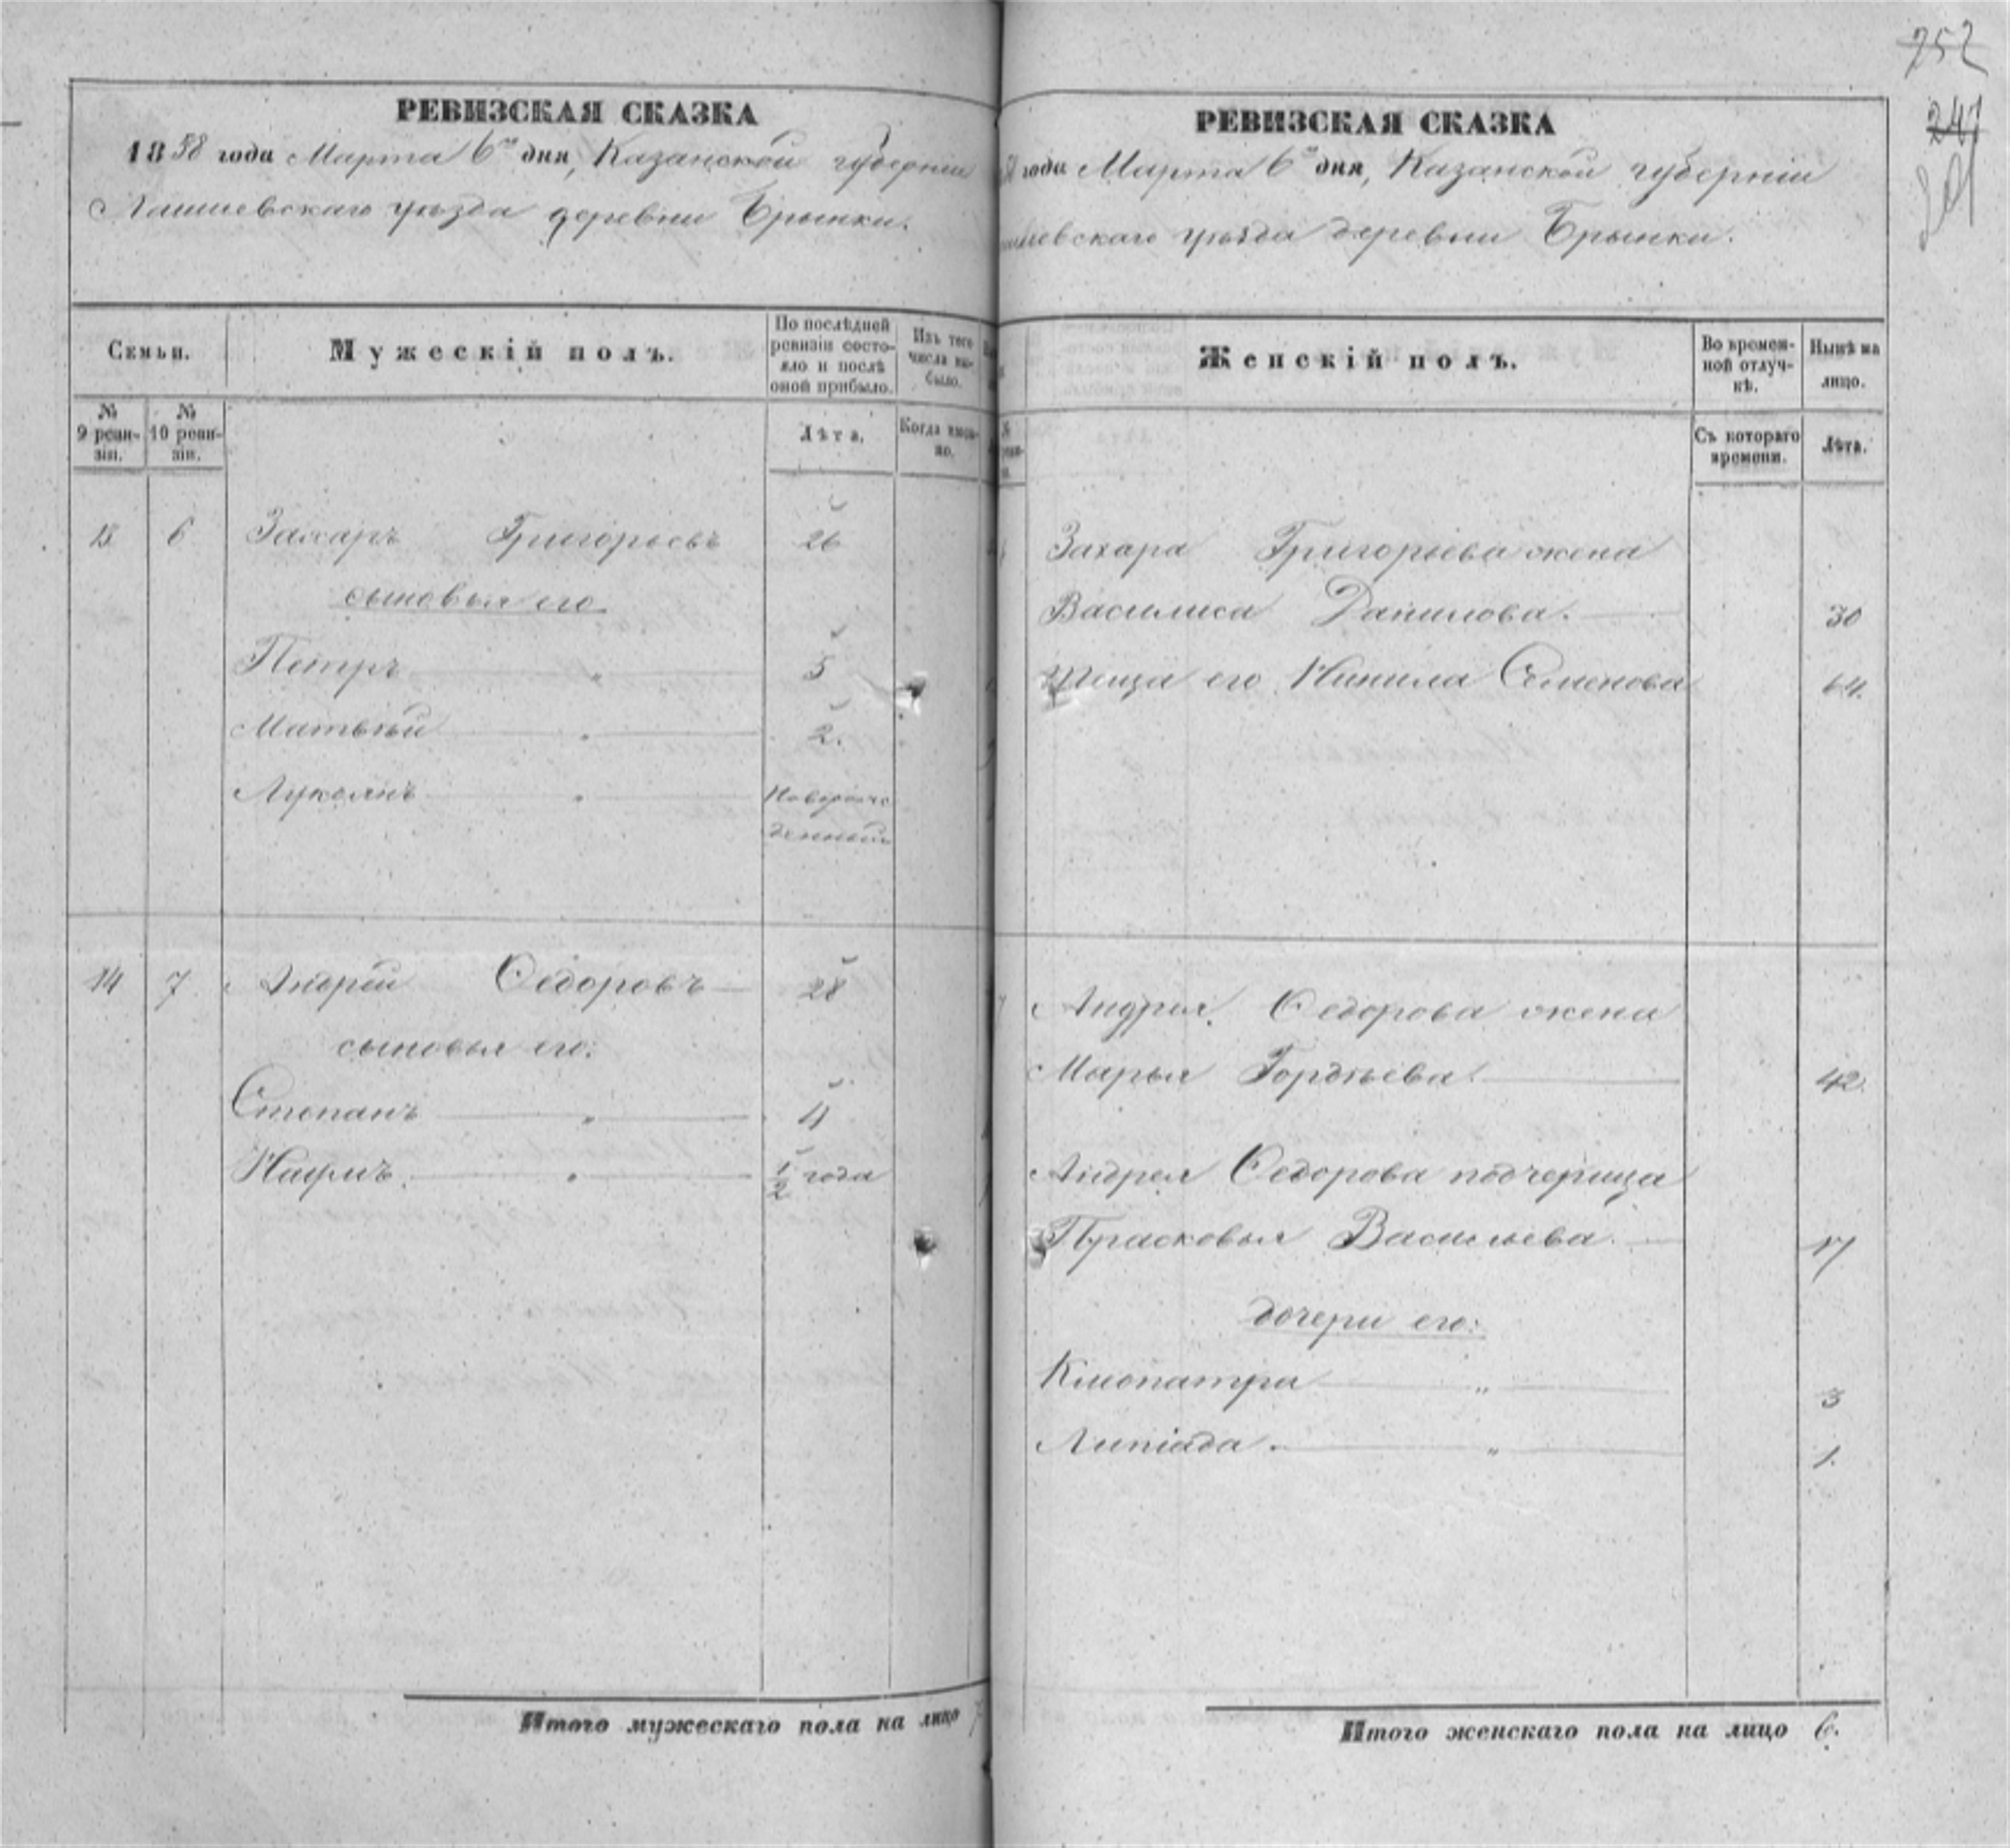 РЕВИЗСКАЯ СКАЗКА
1858 года Марта 6го дня, Казанской губерніи
Лаишевскаго уѣзда деревни Брынки.
Семьи.
Мужескій полъ.
По послѣдней ревизіи состояло и послѣ оной прибыло.
Изъ того числа выбыло.
№ 9 ревизіи.
№ 10 ревизіи.
Лѣта.
Когда именно.
13 6 Захаръ Григорьевъ 26
сыновья его
Петръ " 5
Матвѣй " 2.
Лукоянъ " Новорож
денный
14 7 Андрей Ѳедоровъ 28
сыновья его:
Степанъ " 4
Наумъ. " 1/2 года
Итого мужескаго пола на лицо 7
752
247
РЕВИЗСКАЯ СКАЗКА
58 года Марта 6го дня, Казанской губерніи
шевскаго уѣзда деревни Брынки.
Женскій полъ.
Во временной отлучкѣ.
Нынѣ на лицо.
Съ котораго времени.
Лѣта.
Захара Григорьева жена
Василиса Данилова. 30
Теща его Нинила Семенова 64.
Андрея Ѳедорова жена
Марья Гордѣева. 42.
Андрея Ѳедорова подчерица
Прасковья Васильева. 17
дочери его:
Клиопатра " 3
Липіада. " 1.
Итого женскаго пола на лицо 6.